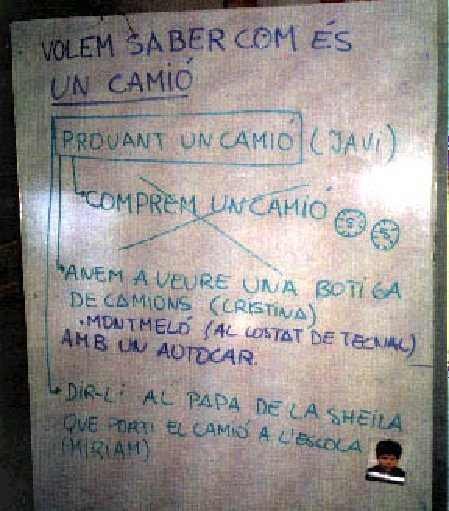 VOLEM SABER COM ÉS
UN CAMIÓ
PROVANT UN CAMIÓ (JAVI)
COMPREM UN CAMIÓ
ANEM A VEURE UNA BOTIGA
DE CAMIONS (CRISTINA)
. MONTMELÓ (AL COSTAT DE TECNAL)
AMB UN AUTOCAR.
DIR-LI AL PAPA DE LA SHEILA
QUE PORTI EL CAMIÓ A L'ESCOLA
(MIRIAM)